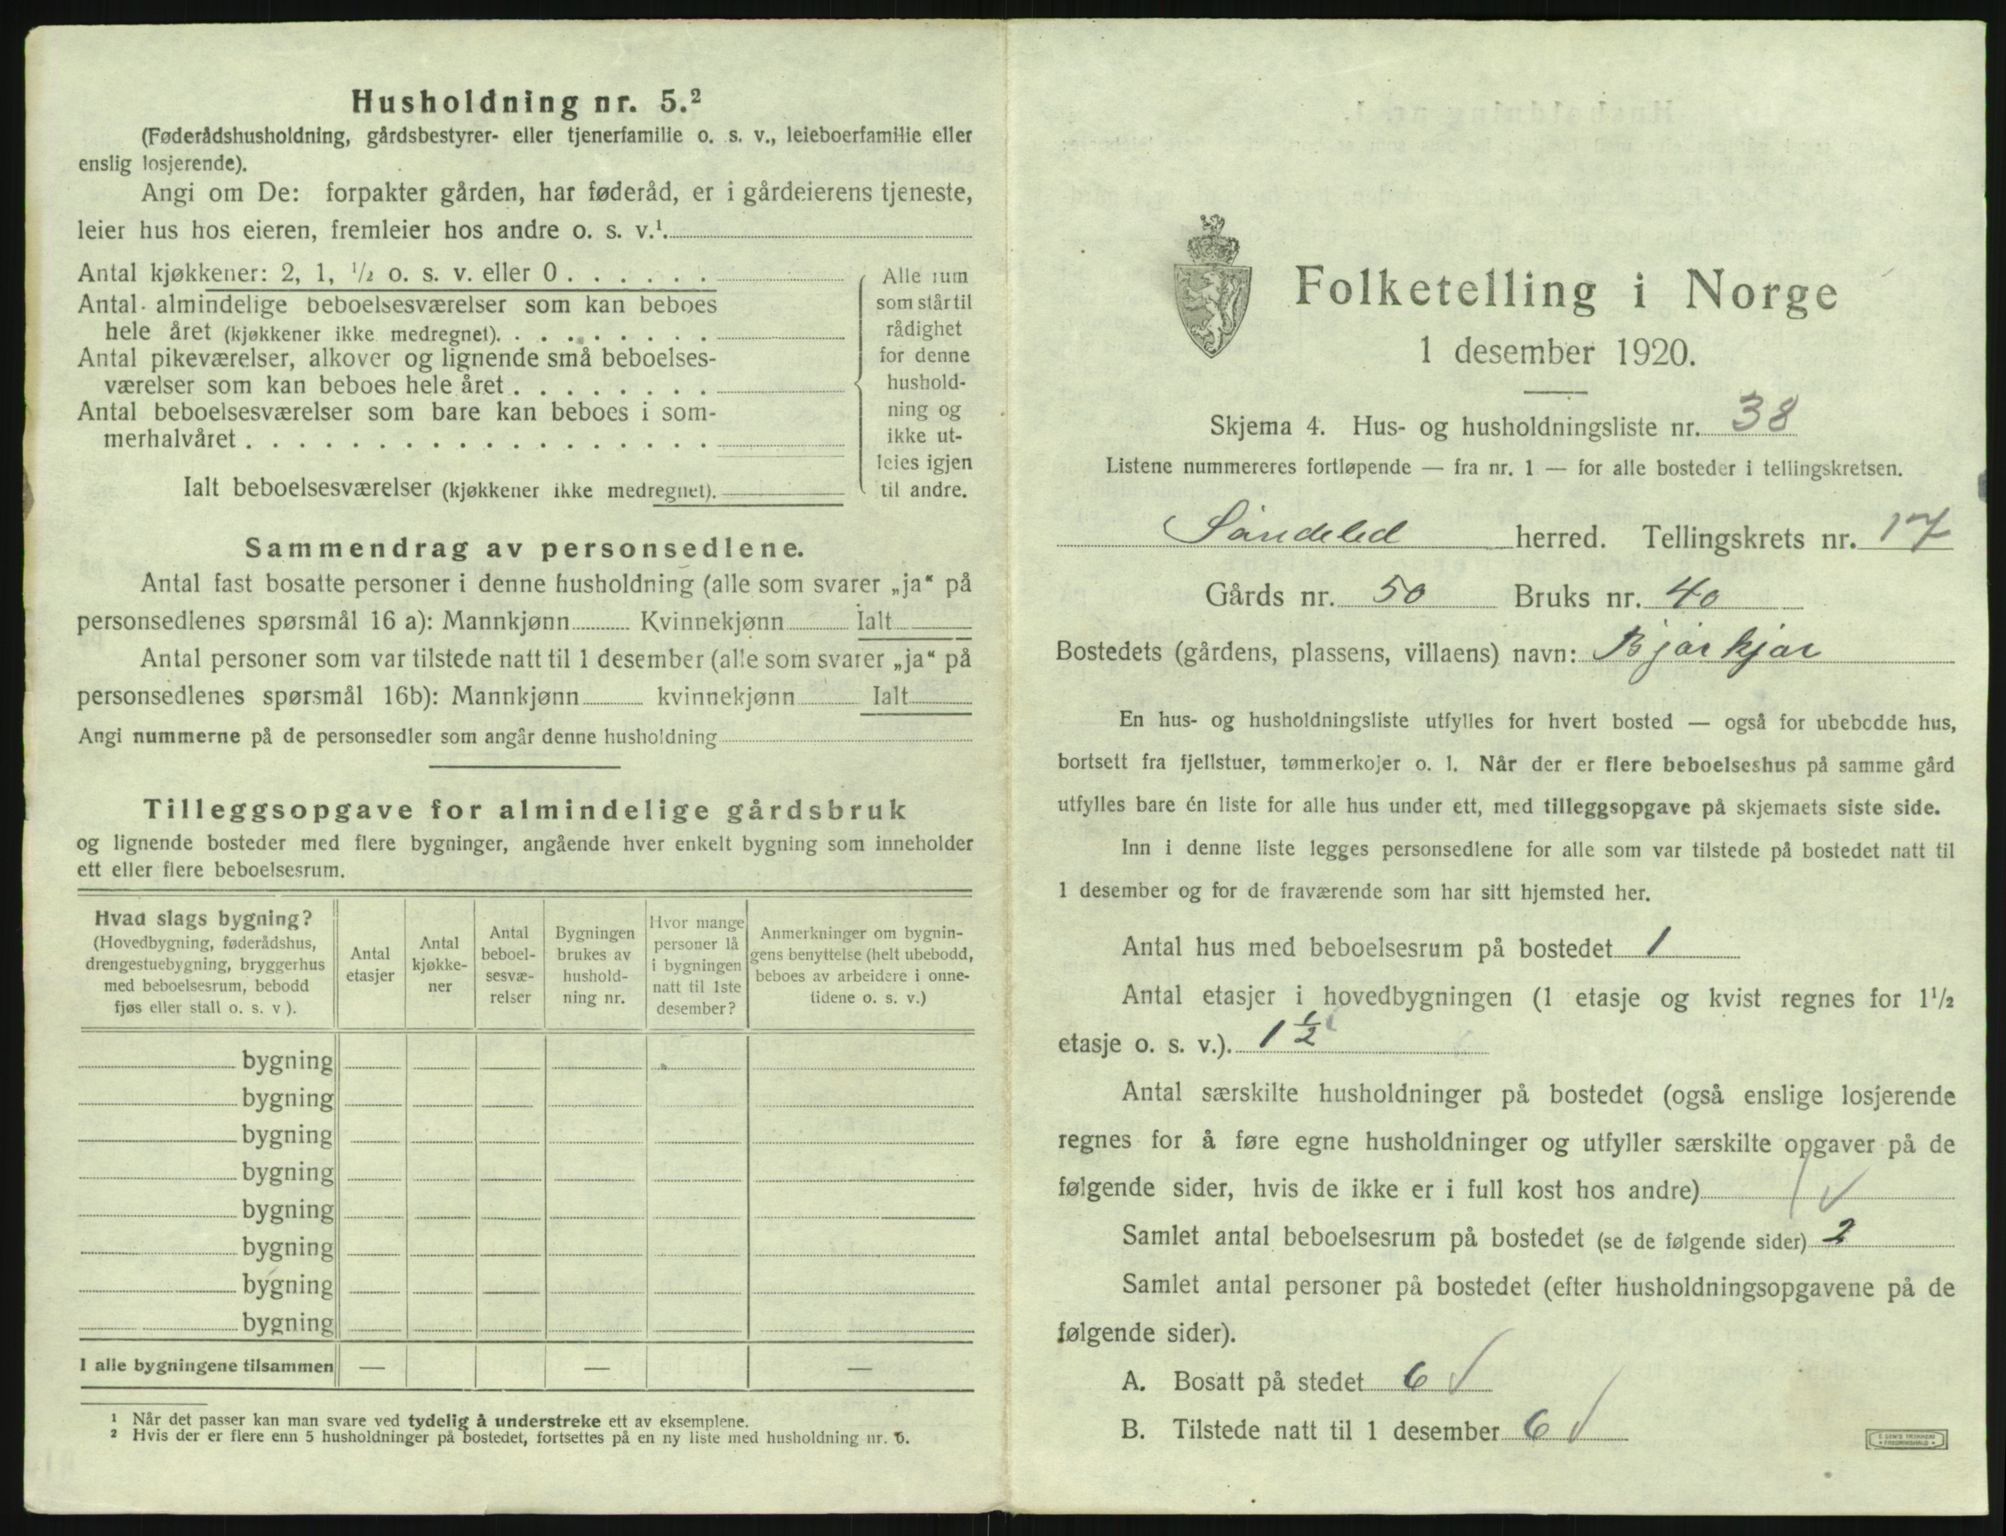 Husholdning nr. 5.²
(Føderådshusholdning, gårdsbestyrer- eller tjenerfamilie o. s. v., leieboerfamilie eller
enslig losjerende).
Angi om De: forpakter gården, har føderåd, er i gårdeierens tjeneste,
leier hus hos eieren, fremleier hos andre o. s. v.¹.
Antal kjøkkener: 2, 1, ½ o. s. v. eller 0 . . . . . .
Antal almindelige beboelsesværelser som kan beboes
hele året (kjøkkener ikke medregnet). . . . . . . . .
Antal pikeværelser, alkover og lignende små beboelses-
værelser som kan beboes hele året . . . . . . . .
Antal beboelsesværelser som bare kan beboes i som-
merhalvåret . . . . . . . . . . . . . . . . . .
Ialt beboelsesværelser (kjøkkener ikke medregnet).
Alle rum
som står til
rådighet
for denne
hushold-
ning og
ikke ut-
leies igjen
til andre.
Sammendrag av personsedlene.
Antal fast bosatte personer i denne husholdning (alle som svarer „ja“ på
personsedlenes spørsmål 16 a): Mannkjønn Kvinnekjønn Ialt
Antal personer som var tilstede natt til 1 desember (alle som svarer „ja“ på
personsedlenes spørsmål 16b): Mannkjønn kvinnekjønn Ialt
Angi nummerne på de personsedler som angår denne husholdning
Tilleggsopgave for almindelige gårdsbruk
og lignende bosteder med flere bygninger, angående hver enkelt bygning som inneholder
ett eller flere beboelsesrum.
Hvad slags bygning?
(Hovedbygning, føderådshus,
drengestuebygning, bryggerhus
med beboelsesrum, bebodd
fjøs eller stall o. s. v ).
Antal
etasjer
Antal
kjøkke-
ner
Antal
beboel-
sesvæ-
relser
Bygningen
brukes av
hushold-
ning nr.
Hvor mange
personer lå
i bygningen
natt til 1ste
desember?
Anmerkninger om bygnin-
gens benyttelse (helt ubebodd,
beboes av arbeidere i onne-
tidene o. s. v.)
bygning
bygning
bygning
bygning
bygning
bygning
bygning
bygning
I alle bygningene tilsammen — — —
¹ Når det passer kan man svare ved tydelig å understreke ett av eksemplene.
² Hvis der er flere enn 5 husholdninger på bostedet, fortsettes på en ny liste med husholdning nr. 6.
Folketelling i Norge
1 desember 1920.
Skjema 4. Hus- og husholdningsliste nr. 38
Listene nummereres fortløpende — fra nr. 1 — for alle bosteder i tellingskretsen.
Søndeled herred. Tellingskrets nr. 17
Gårds nr. 50 Bruks nr. 40
Bostedets (gårdens, plassens, villaens) navn: Bjørkjær
En hus- og husholdningsliste utfylles for hvert bosted — også for ubebodde hus,
bortsett fra fjellstuer, tømmerkojer o. l. Når der er flere beboelseshus på samme gård
utfylles bare én liste for alle hus under ett, med tilleggsopgave på skjemaets siste side.
Inn i denne liste legges personsedlene for alle som var tilstede på bostedet natt til
1 desember og for de fraværende som har sitt hjemsted her.
Antal hus med beboelsesrum på bostedet 1
Antal etasjer i hovedbygningen (1 etasje og kvist regnes for 1½
etasje o. s. v.). 1½
Antal særskilte husholdninger på bostedet (også enslige losjerende
regnes for å føre egne husholdninger og utfyller særskilte opgaver på de
følgende sider, hvis de ikke er i full kost hos andre) 1 ✓
Samlet antal beboelsesrum på bostedet (se de følgende sider) 2
Samlet antal personer på bostedet (efter husholdningsopgavene på de
følgende sider).
A. Bosatt på stedet 6 ✓
B. Tilstede natt til 1 desember 6 ✓